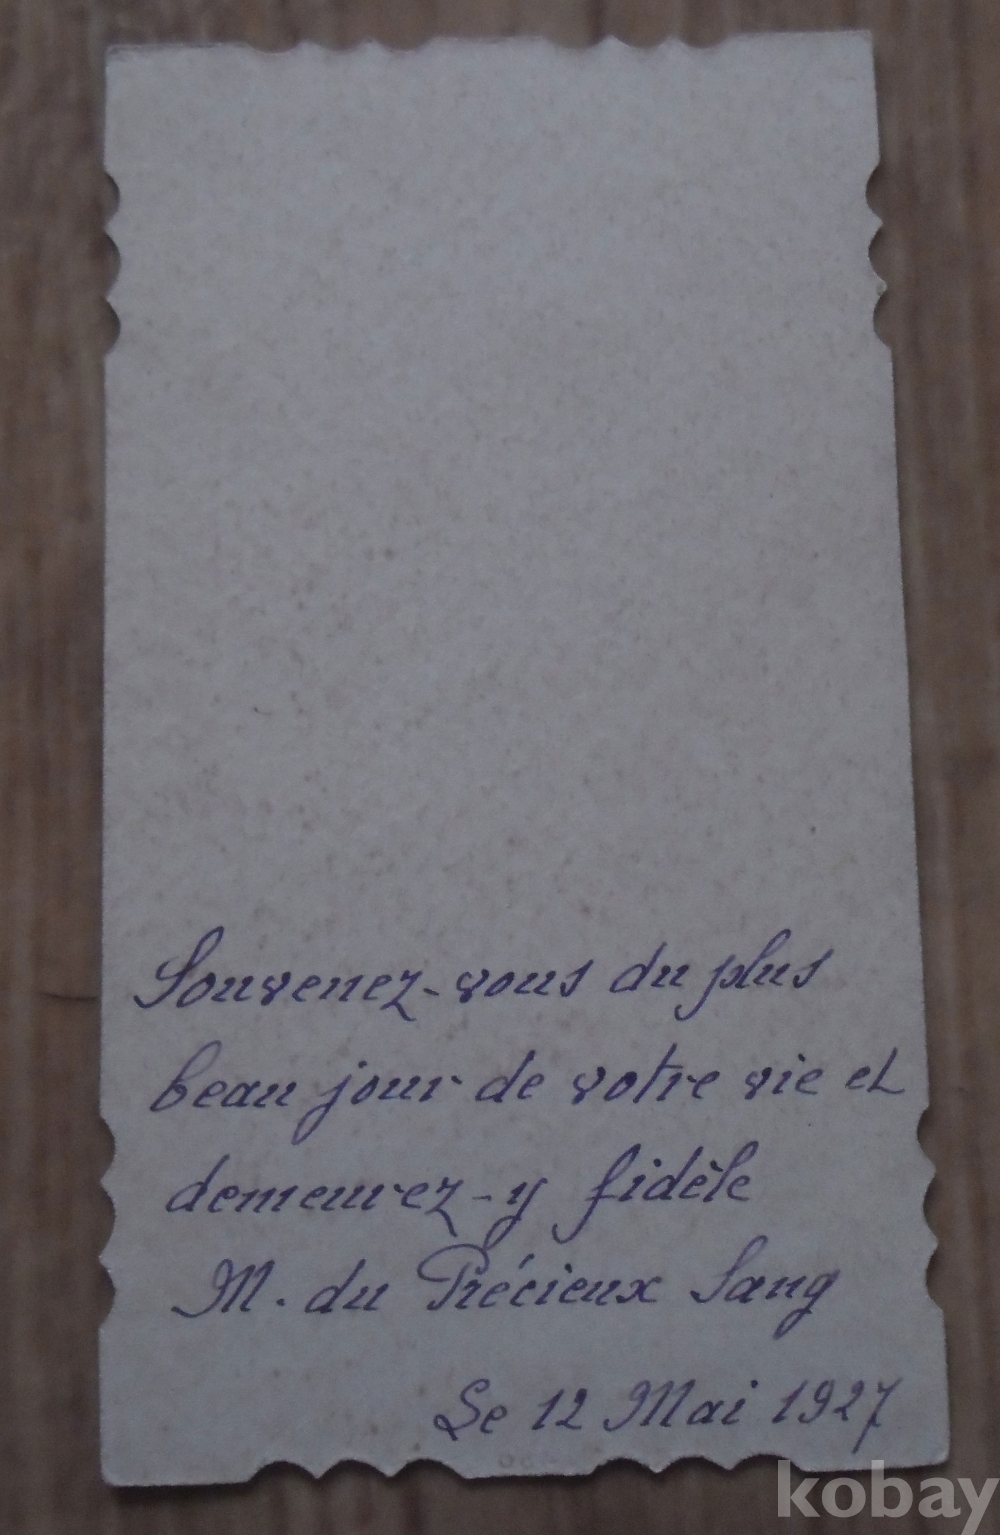 Souvenez-vous du plus
beau jour de votre vie et
demeurez-y fidèle
M. du Précieux Sang
Le 12 Mai 1927
kobay